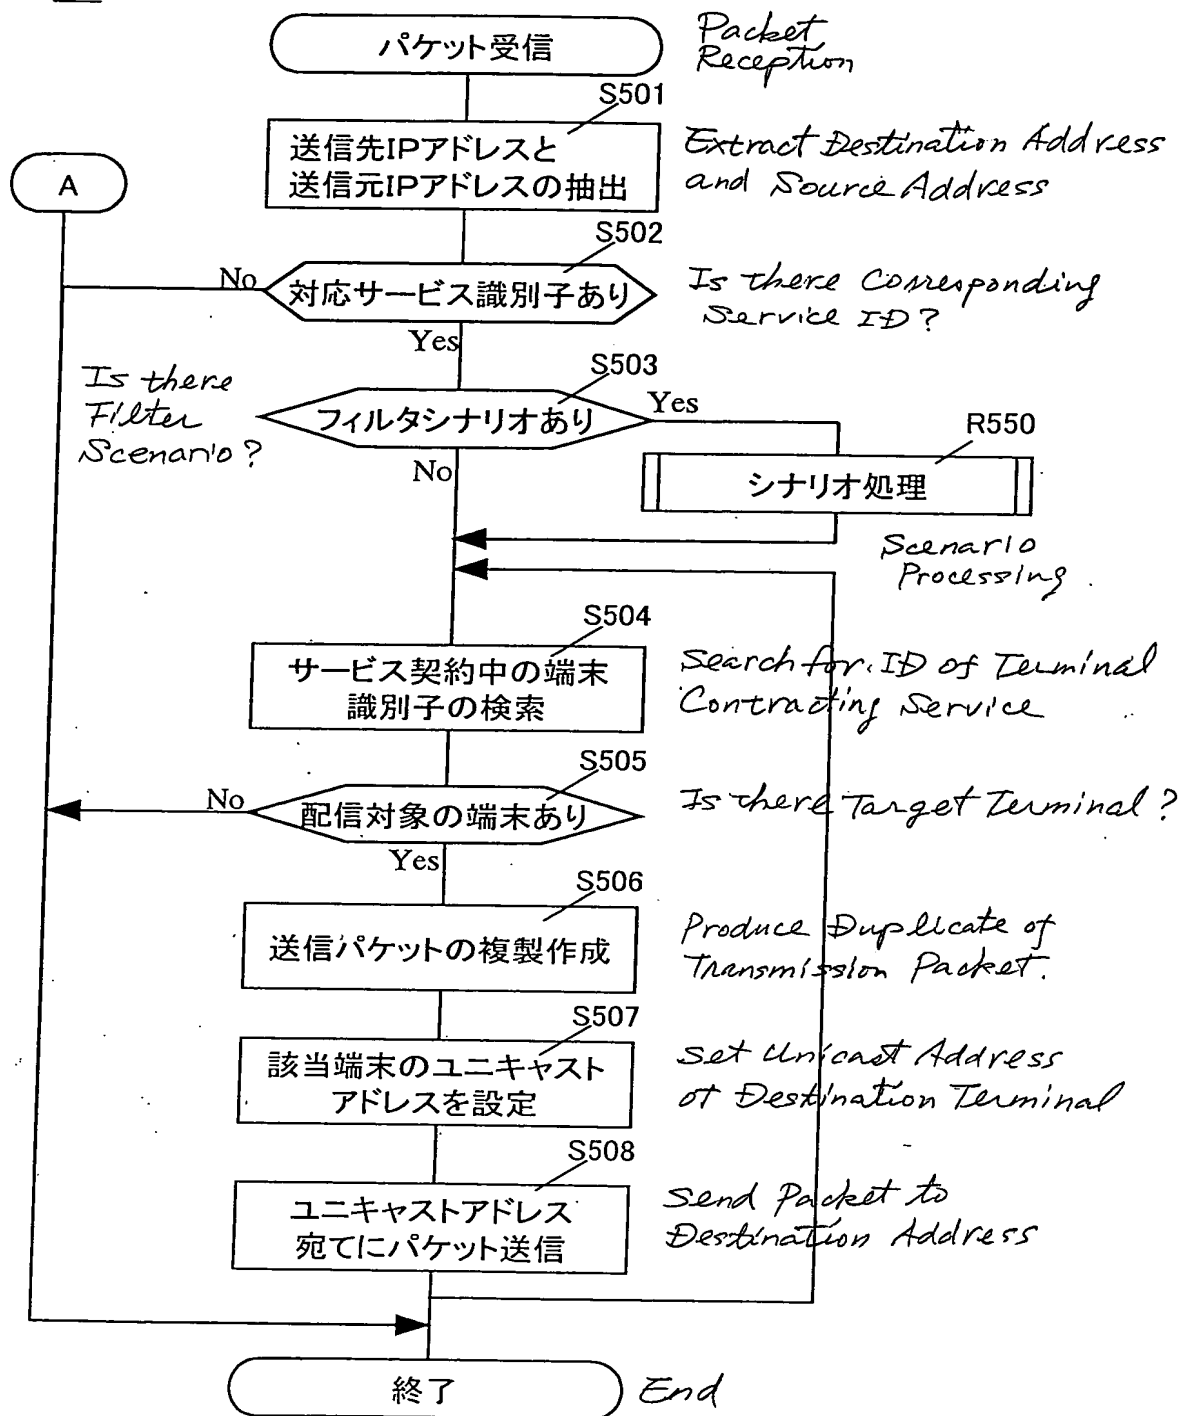 パケット受信
Packet
Reception
S501
送信先IPアドレスと
送信元IPアドレスの抽出
Extract Destination Address
and Source Address
A
S502
No
対応サービス識別子あり
Is there Corresponding
Service ID?
Yes
S503
Is there
Filter
Scenario?
フィルタシナリオあり
Yes
No
R550
シナリオ処理
Scenario
Processing.
S504
サービス契約中の端末
識別子の検索
Search for ID of Terminal
Contracting Service
S505
No
配信対象の端末あり
Is there Target Terminal?
Yes
S506
送信パケットの複製作成
Produce Duplicate of
Transmission Packet.
S507
該当端末のユニキャスト
アドレスを設定
Set Unicast Address
of Destination Terminal
S508
ユニキャストアドレス
宛てにパケット送信
Send Packet to
Destination Address
終了
End